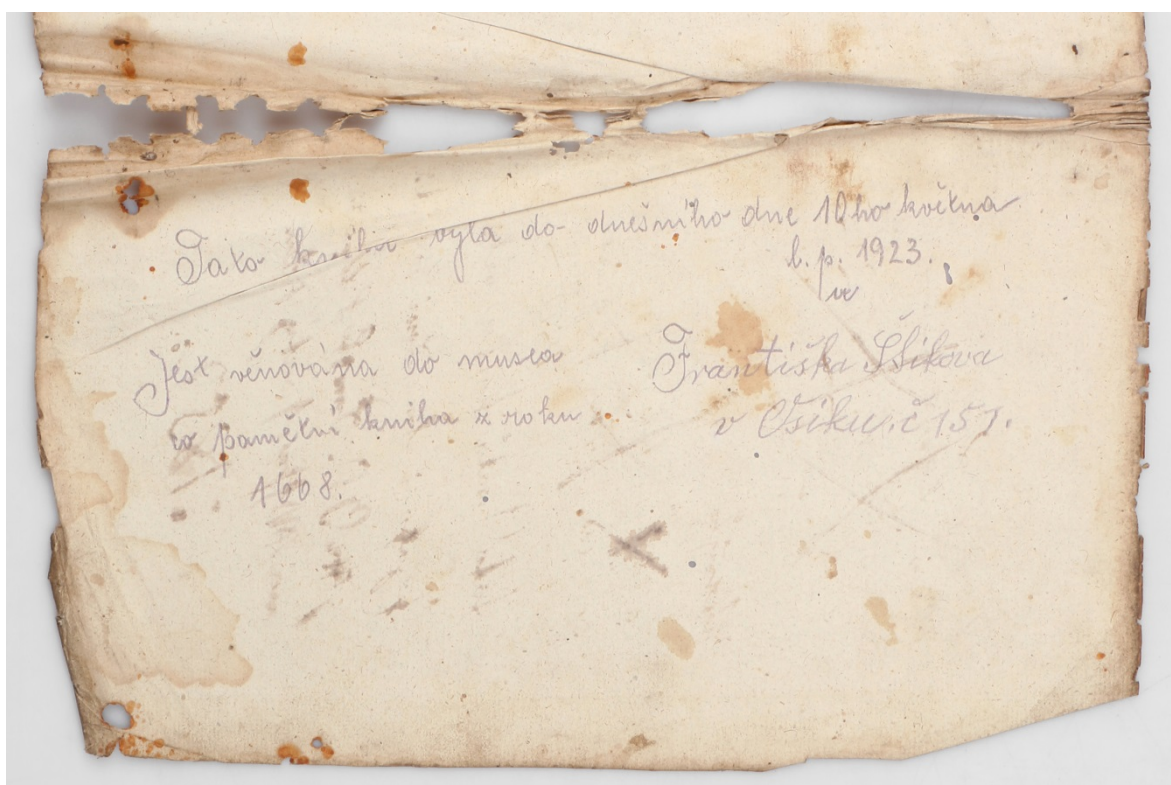 Tato kniha byla do dnešního dne 10ho května
l. p. 1923.
Jest věnována do musea
co pamětní kniha z roku
1668.
Františka
v Osiku. č 151.